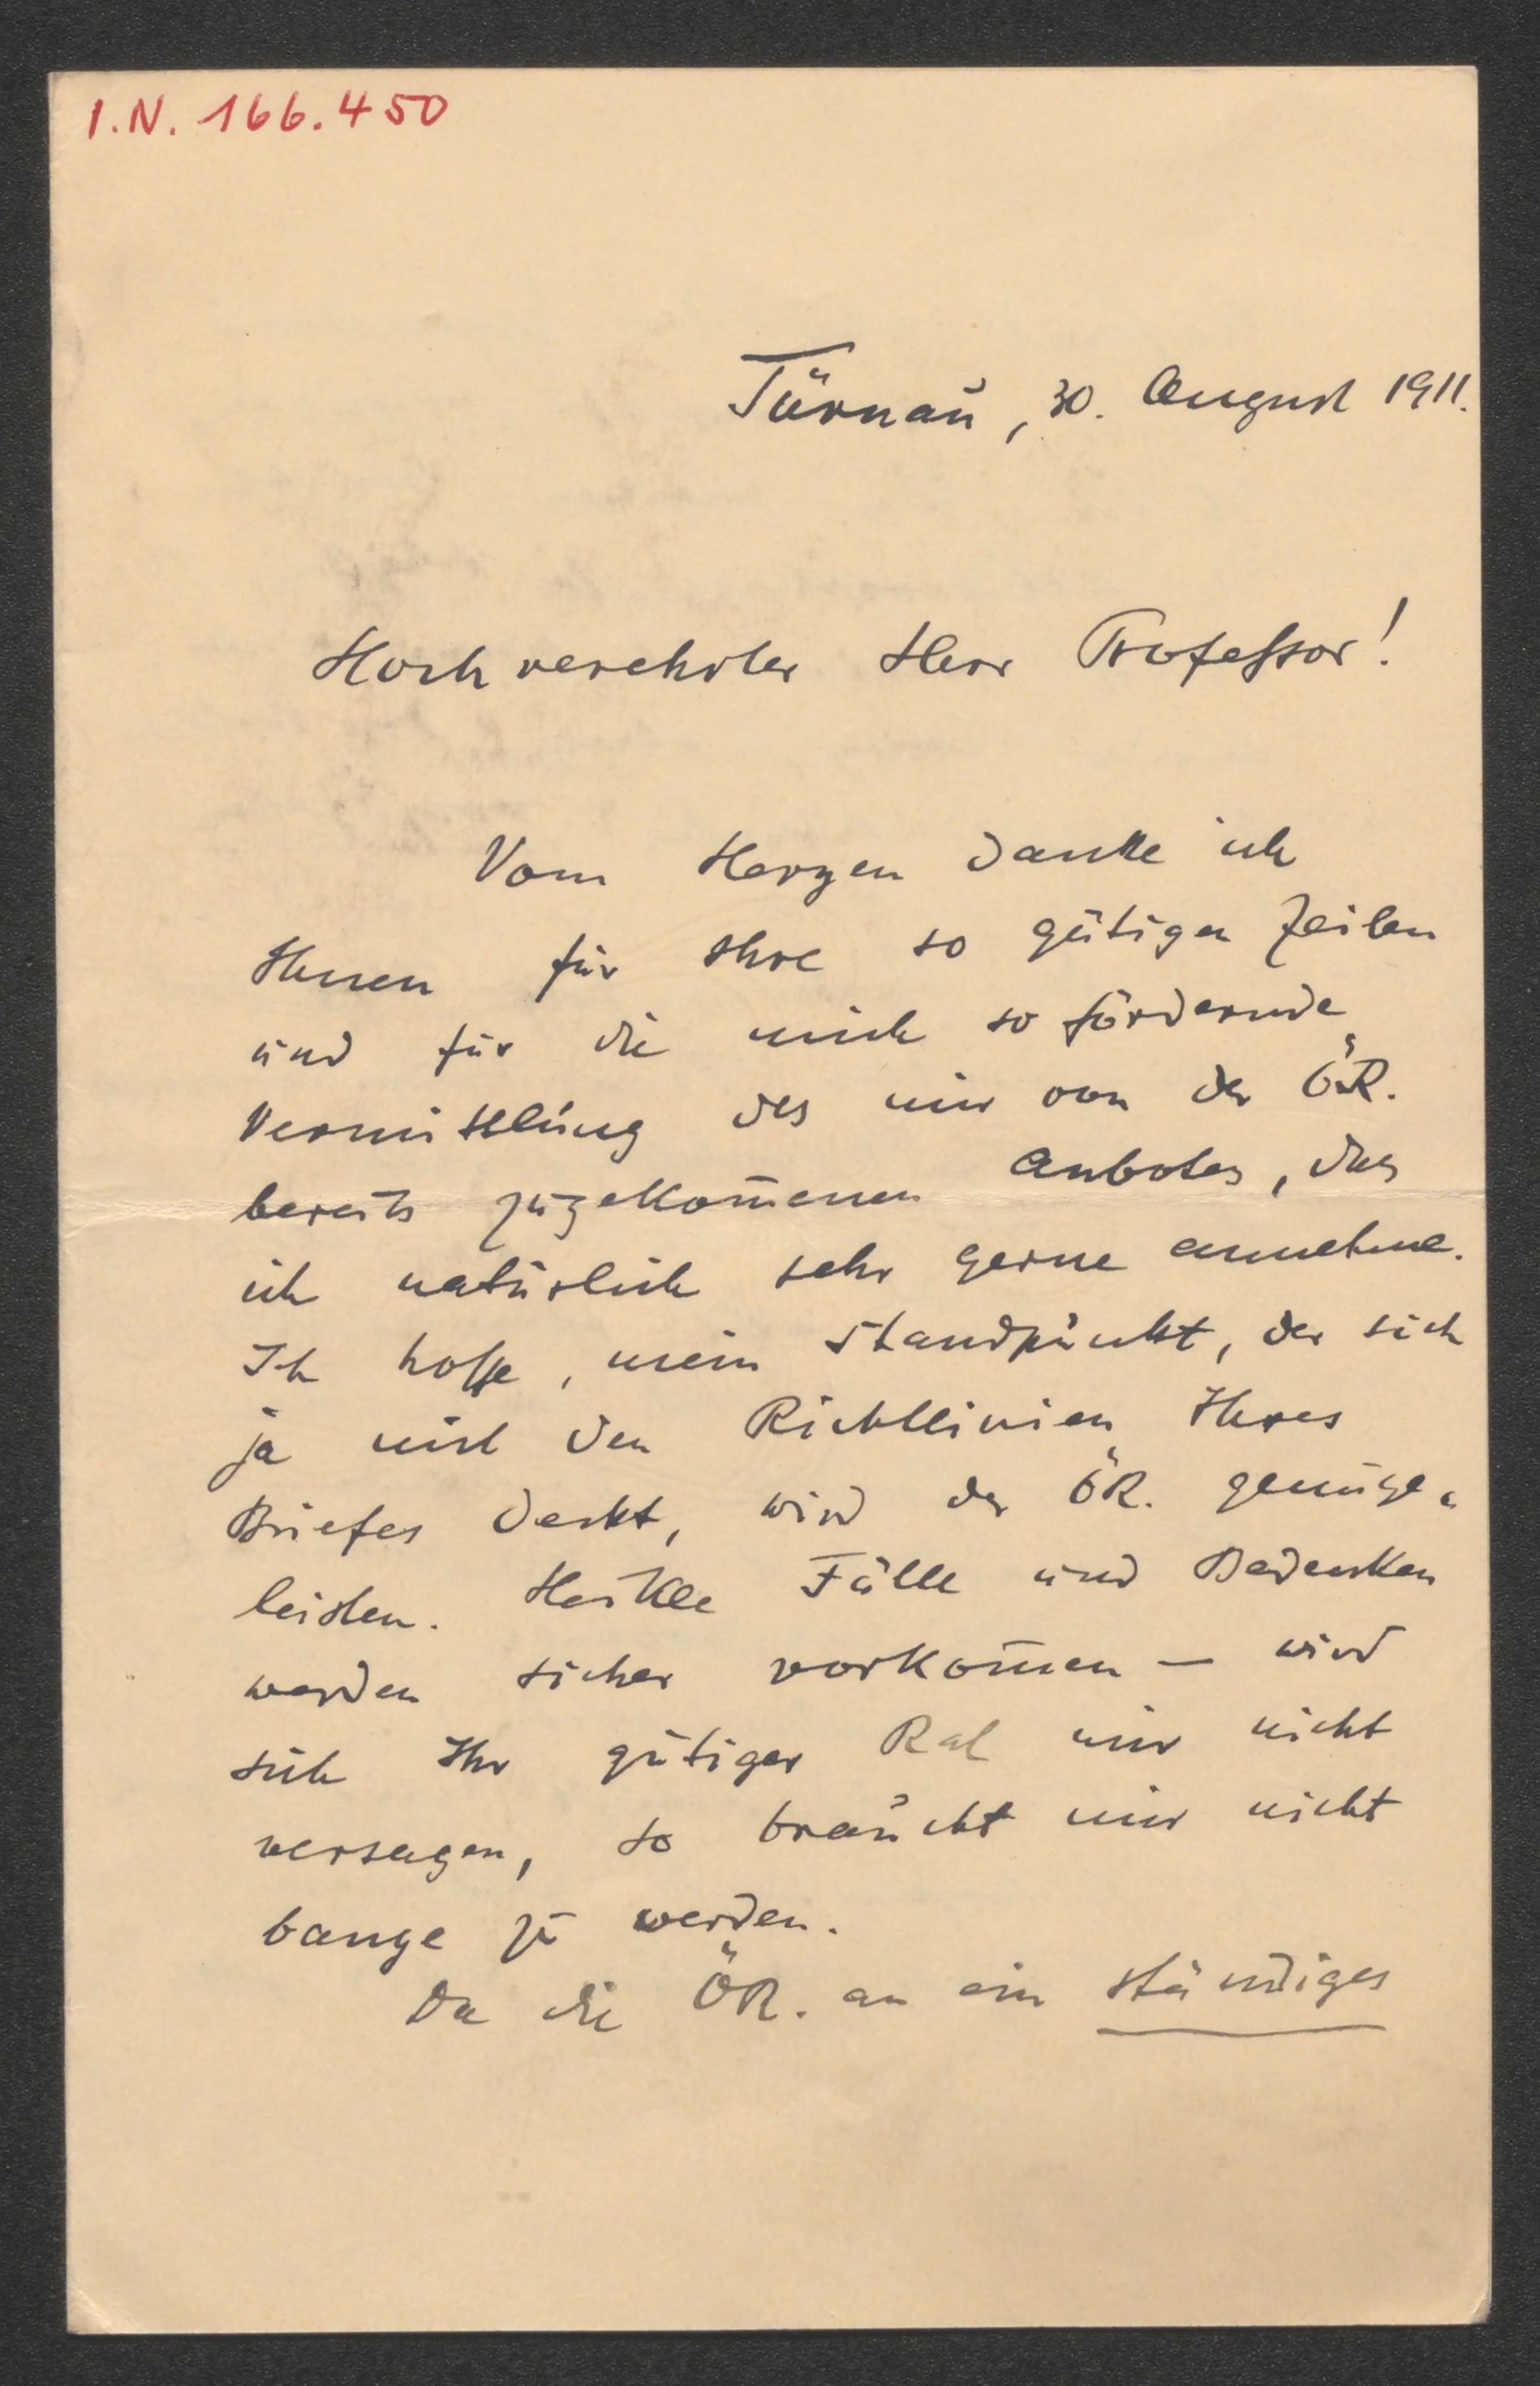 I.N. 166.450
Türnau, 30. August 1911.
Hochverehrter Herr Professor!
Vom Herzen danke ich
Ihnen für Ihre so gütigen Zeilen
und für die mich so fördernde
Vermittlung des mir von der ÖR.
bereits zugekom̅enen Anbotes, das
ich natürlich sehr gerne annehme.
Ich hoffe, mein Standpunkt, der sich
ja mit den Richtlinien Ihres
Briefes deckt, wird der ÖR. genüge
leisten. Heikle Fälle und Bedenken
werden sicher vorkom̅en – wird
sich Ihr gütiger Rat mir nicht
versagen, so braucht mir nicht
bange zu werden.
Da die ÖR. an ein ständiges